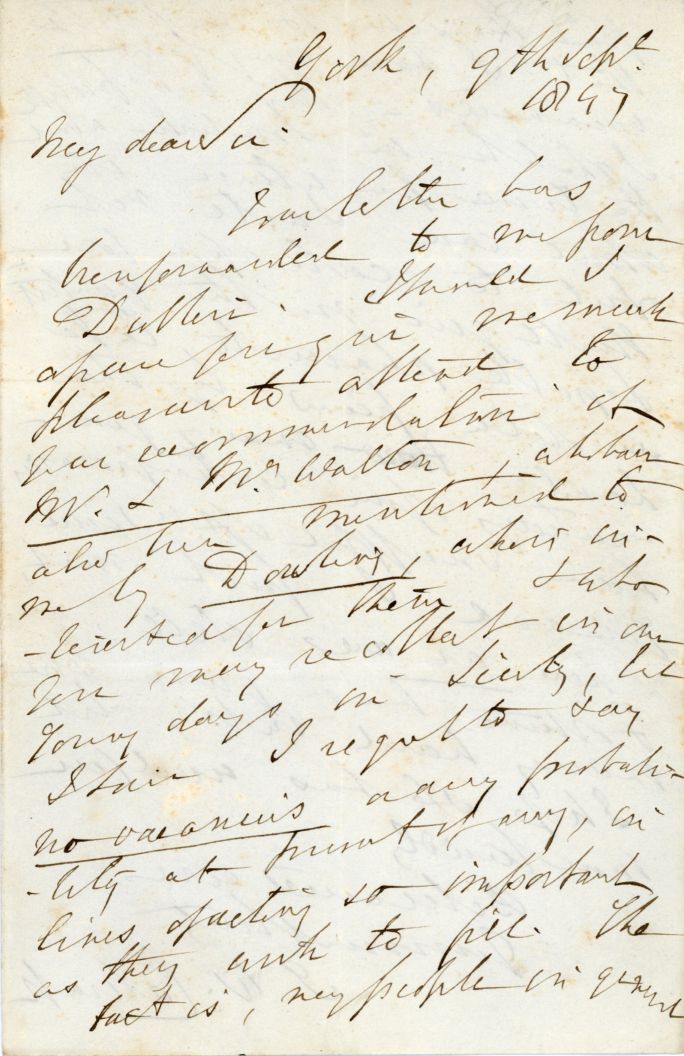 York, 9th Sept.
1847
My dear Sir.
Your letter has
been forwarded to me from
Dublin. Should I
give me much
pleasure to attend to
your recommendation of
Mr. & Mrs. Walton, who have
also been mentioned to
me by Dowling, who is in-
-terested for them & who
you may recollect in our
young days in Society, but
I have I regret to say
no vacancies or any probabi-
-lity at present of any, in
lines of acting so important
as they wish to fill. The
fact is, my people in general